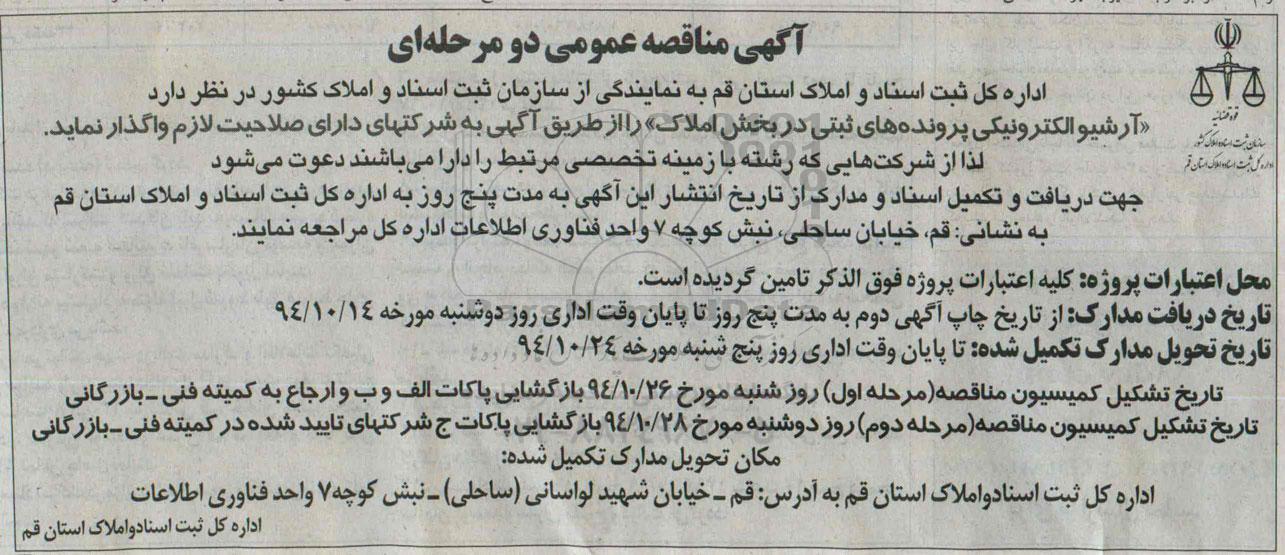 آگهی مناقصه عمومی دو مرحله‌ای
قوه قضائیه
سازمان ثبت اسناد و املاک کشور
اداره کل ثبت اسناد و املاک استان قم
اداره کل ثبت اسناد و املاک استان قم به نمایندگی از سازمان ثبت اسناد و املاک کشور در نظر دارد
«آرشیو الکترونیکی پرونده‌های ثبتی در بخش املاک» را از طریق آگهی به شرکتهای دارای صلاحیت لازم واگذار نماید.
لذا از شرکت‌هایی که رشته یا زمینه تخصصی مرتبط را دارا می‌باشند دعوت می‌شود
جهت دریافت و تکمیل اسناد و مدارک از تاریخ انتشار این آگهی به مدت پنج روز به اداره کل ثبت اسناد و املاک استان قم
به نشانی: قم، خیابان ساحلی، نبش کوچه ۷ واحد فناوری اطلاعات اداره کل مراجعه نمایند.
محل اعتبارات پروژه: کلیه اعتبارات پروژه فوق الذکر تامین گردیده است.
تاریخ دریافت مدارک: از تاریخ چاپ آگهی دوم به مدت پنج روز تا پایان وقت اداری روز دوشنبه مورخه ۹٤/۱۰/۱٤
تاریخ تحویل مدارک تکمیل شده: تا پایان وقت اداری روز پنج شنبه مورخه ۹٤/۱۰/۲٤
تاریخ تشکیل کمیسیون مناقصه(مرحله اول) روز شنبه مورخ ۹٤/۱۰/۲۶ بازگشایی پاکات الف و ب و ارجاع به کمیته فنی ـ بازرگانی
تاریخ تشکیل کمیسیون مناقصه(مرحله دوم) روز دوشنبه مورخ ۹٤/۱۰/۲۸ بازگشایی پاکات ج شرکتهای تایید شده در کمیته فنی ـ بازرگانی
مکان تحویل مدارک تکمیل شده:
اداره کل ثبت اسناد واملاک استان قم به آدرس: قم ـ خیابان شهید لواسانی (ساحلی) ـ نبش کوچه۷ واحد فناوری اطلاعات
اداره کل ثبت اسناد واملاک استان قم